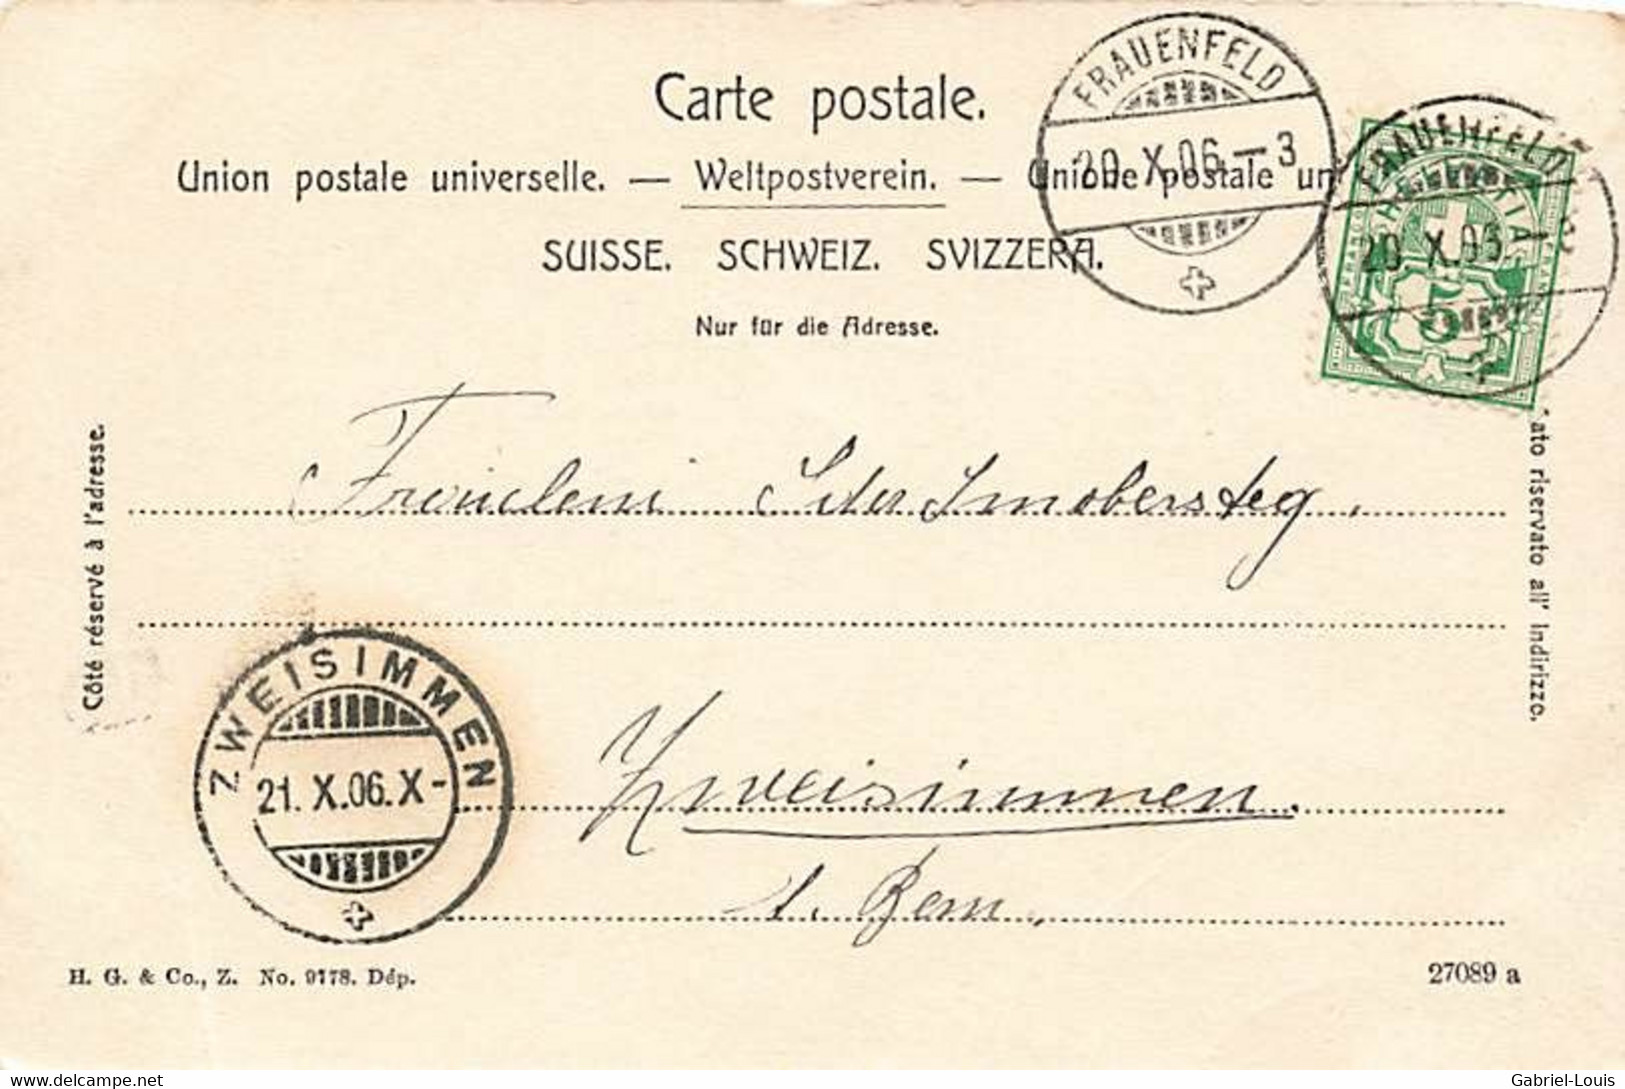 Carte postale.
Union postale universelle. — Weltpostverein. — Unione postale un
SUISSE. SCHWEIZ. SVIZZERA.
Nur für die Adresse.
FRAUENFELD
20.X.06.–3
FRAUENFELD
20.X.06.–3
HELVETIA
5
Côté réservé à l'adresse.
ato riservato all' indirizzo.
Fräulein Ida Imobersteg.
ZWEISIMMEN
21.X.06.X–
Zweisimmen.
Bern.
H. G. & Co., Z. No. 9778. Dép.
27089 a
www.delcampe.net
Gabriel-Louis